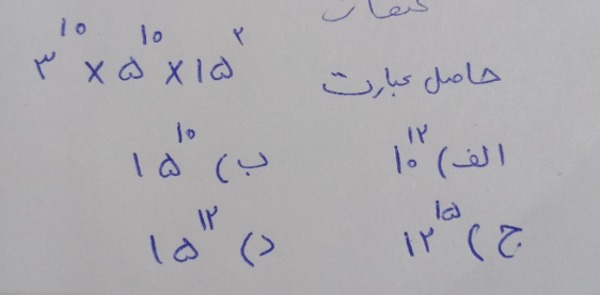 حاصل عبارت ۳^۱۰ × ۵^۱۰ × ۱۵^۲
الف) ۱۰^۱۲ ب) ۱۵^۱۰
ج) ۱۲^۱۵ د) ۱۵^۱۲